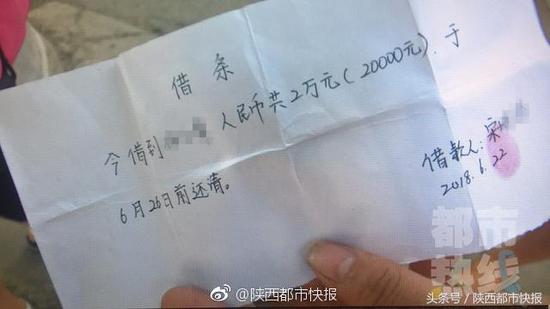 借条
今借到 人民币共2万元(20000元).于
6月26日前还清。
借款人:宋
2018.6.22
都市
热线
@陕西都市快报
头条号/陕西都市快报